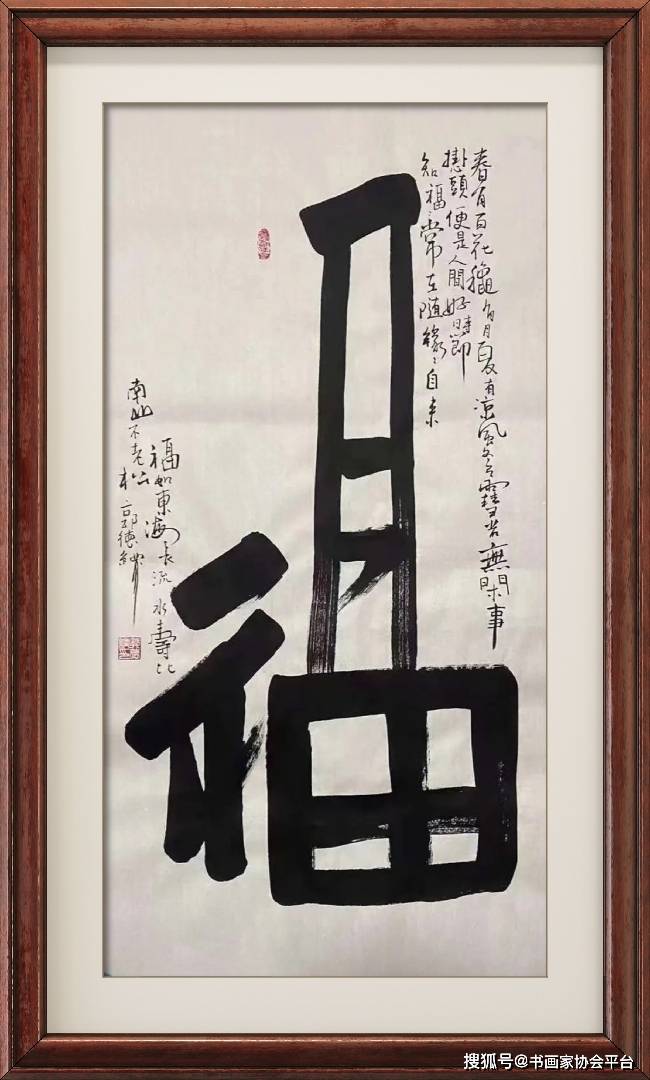 春有百花龝有月夏有凉风冬有雪若無閒事
掛頭便是人間好時節
知福〻常在随缘〻自来
福
福如東海长流水壽比
南山不老松 郭德
搜狐号@书画家协会平台